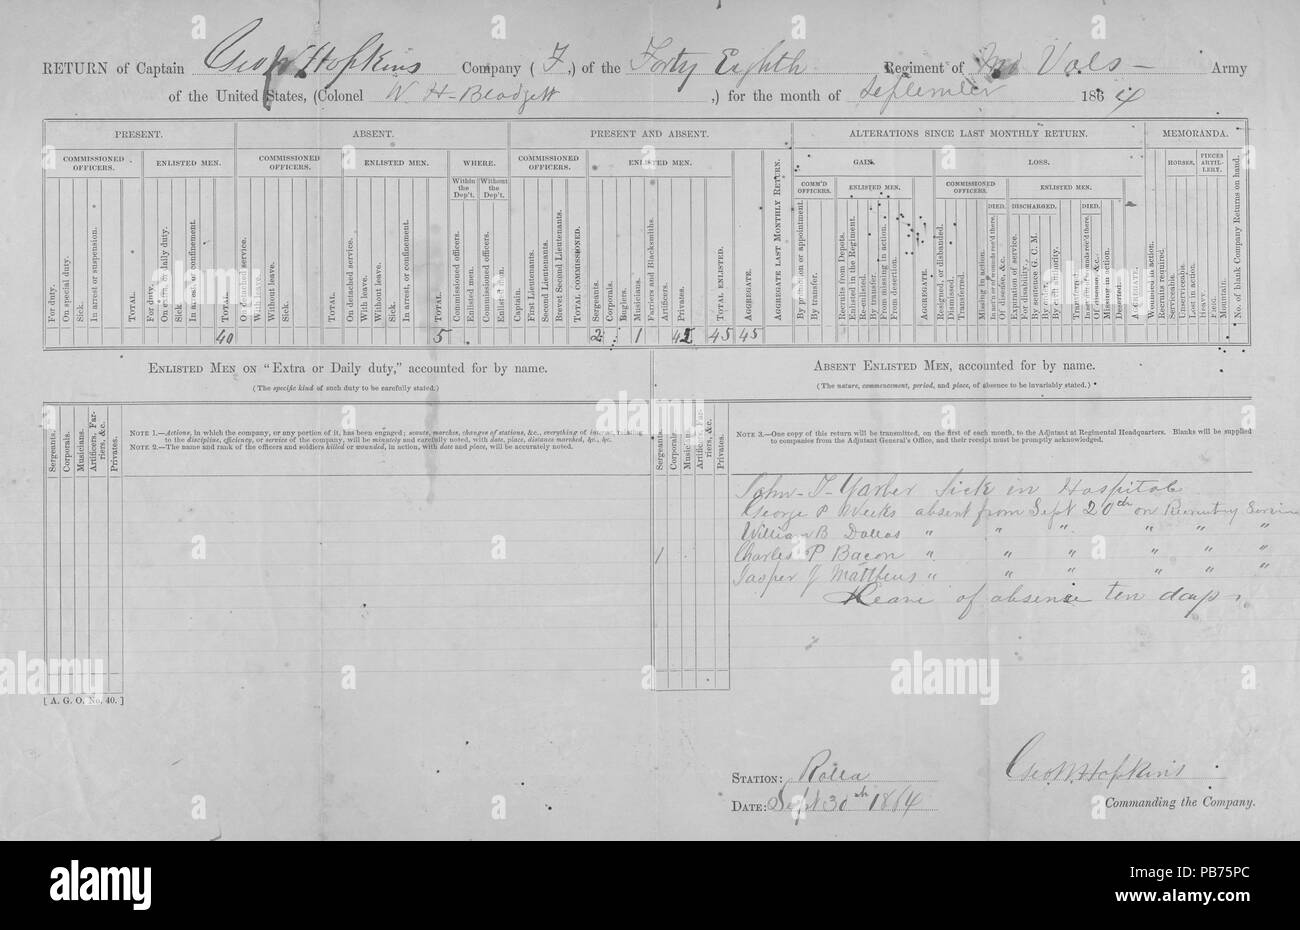 RETURN of Captain Geo W Hopkins Company ( F ,) of the Forty Eighth Regiment of Mo Vols — Army
of the United States, (Colonel W. H. Blodgett ,) for the month of September 1864
PRESENT. ABSENT. PRESENT AND ABSENT. ALTERATIONS SINCE LAST MONTHLY RETURN. MEMORANDA.
COMMISSIONED OFFICERS. ENLISTED MEN. COMMISSIONED OFFICERS. ENLISTED MEN. WHERE. COMMISSIONED OFFICERS. ENLISTED MEN. AGGREGATE LAST MONTHLY RETURN. GAIN. LOSS. HORSES. PIECES ARTILLERY. No. of blank Company Returns on hand.
Within the Dep't. Without the Dep't. COMM'D OFFICERS. ENLISTED MEN. AGGREGATE. COMMISSIONED OFFICERS. ENLISTED MEN.
DIED. DISCHARGED. DIED.
For duty. On special duty. Sick. In arrest or suspension. TOTAL. For duty. On extra or daily duty. Sick. In arrest or confinement. TOTAL. On detached service. With leave. Without leave. Sick. TOTAL. On detached service. With leave. Without leave. Sick. In arrest, or confinement. TOTAL. Commissioned officers. Enlisted men. Commissioned officers. Enlisted men. Captain. First Lieutenants. Second Lieutenants. Brevet Second Lieutenants. TOTAL COMMISSIONED. Sergeants. Corporals. Buglers. Musicians. Farriers and Blacksmiths. Artificers. Privates. TOTAL ENLISTED. AGGREGATE. By promotion or appointment. By transfer. Recruits from Depots. Enlisted in the Regiment. Re-enlisted. By transfer. From missing in action. From desertion. Resigned, or disbanded. Dismissed. Transferred. Missing in action. In act'n or of wounds rec'd there. Of disease, &c. Expiration of service. For disability. By sentence G. C. M. By order. By civil authority. Transferred. In act'n or of wounds rec'd there. Of disease, &c. Missing in action. Deserted. AGGREGATE. Wounded in action. Recruits required. Serviceable. Unserviceable. Lost in action. Heavy. Field. Mountain.
40 5 2 1 42 45 45
ENLISTED MEN ON "Extra or Daily duty," accounted for by name. ABSENT ENLISTED MEN, accounted for by name.
(The specific kind of such duty to be carefully stated.) (The nature, commencement, period, and place, of absence to be invariably stated.)
Sergeants. Corporals. Musicians. Artificers, Farriers, &c. Privates. Sergeants. Corporals. Musicians. Artificers, Farriers, &c. Privates.
NOTE 1.—Actions, in which the company, or any portion of it, has been engaged; scouts, marches, changes of stations, &c., everything of interest relating
to the discipline, efficiency, or service of the company, will be minutely and carefully noted, with date, place, distances marched, &c., &c.
NOTE 2.—The name and rank of the officers and soldiers killed or wounded, in action, with date and place, will be accurately noted.
NOTE 3.—One copy of this return will be transmitted, on the first of each month, to the Adjutant at Regimental Headquarters. Blanks will be supplied
to companies from the Adjutant General's Office, and their receipt must be promptly acknowledged.
John T Yarber Sick in Hospital
George P Weeks absent from Sept 20th on Recruiting Service
William B Dallas " " " " " "
1 Charles P Bacon " " " " " "
Jasper J Matthews " " " " " "
Leave of absence ten days
[ A. G. O. No. 40. ]
STATION: Rolla Geo W Hopkins
DATE: Sept 30th 1864 Commanding the Company.
alamy
Image ID: PB75PC
www.alamy.com